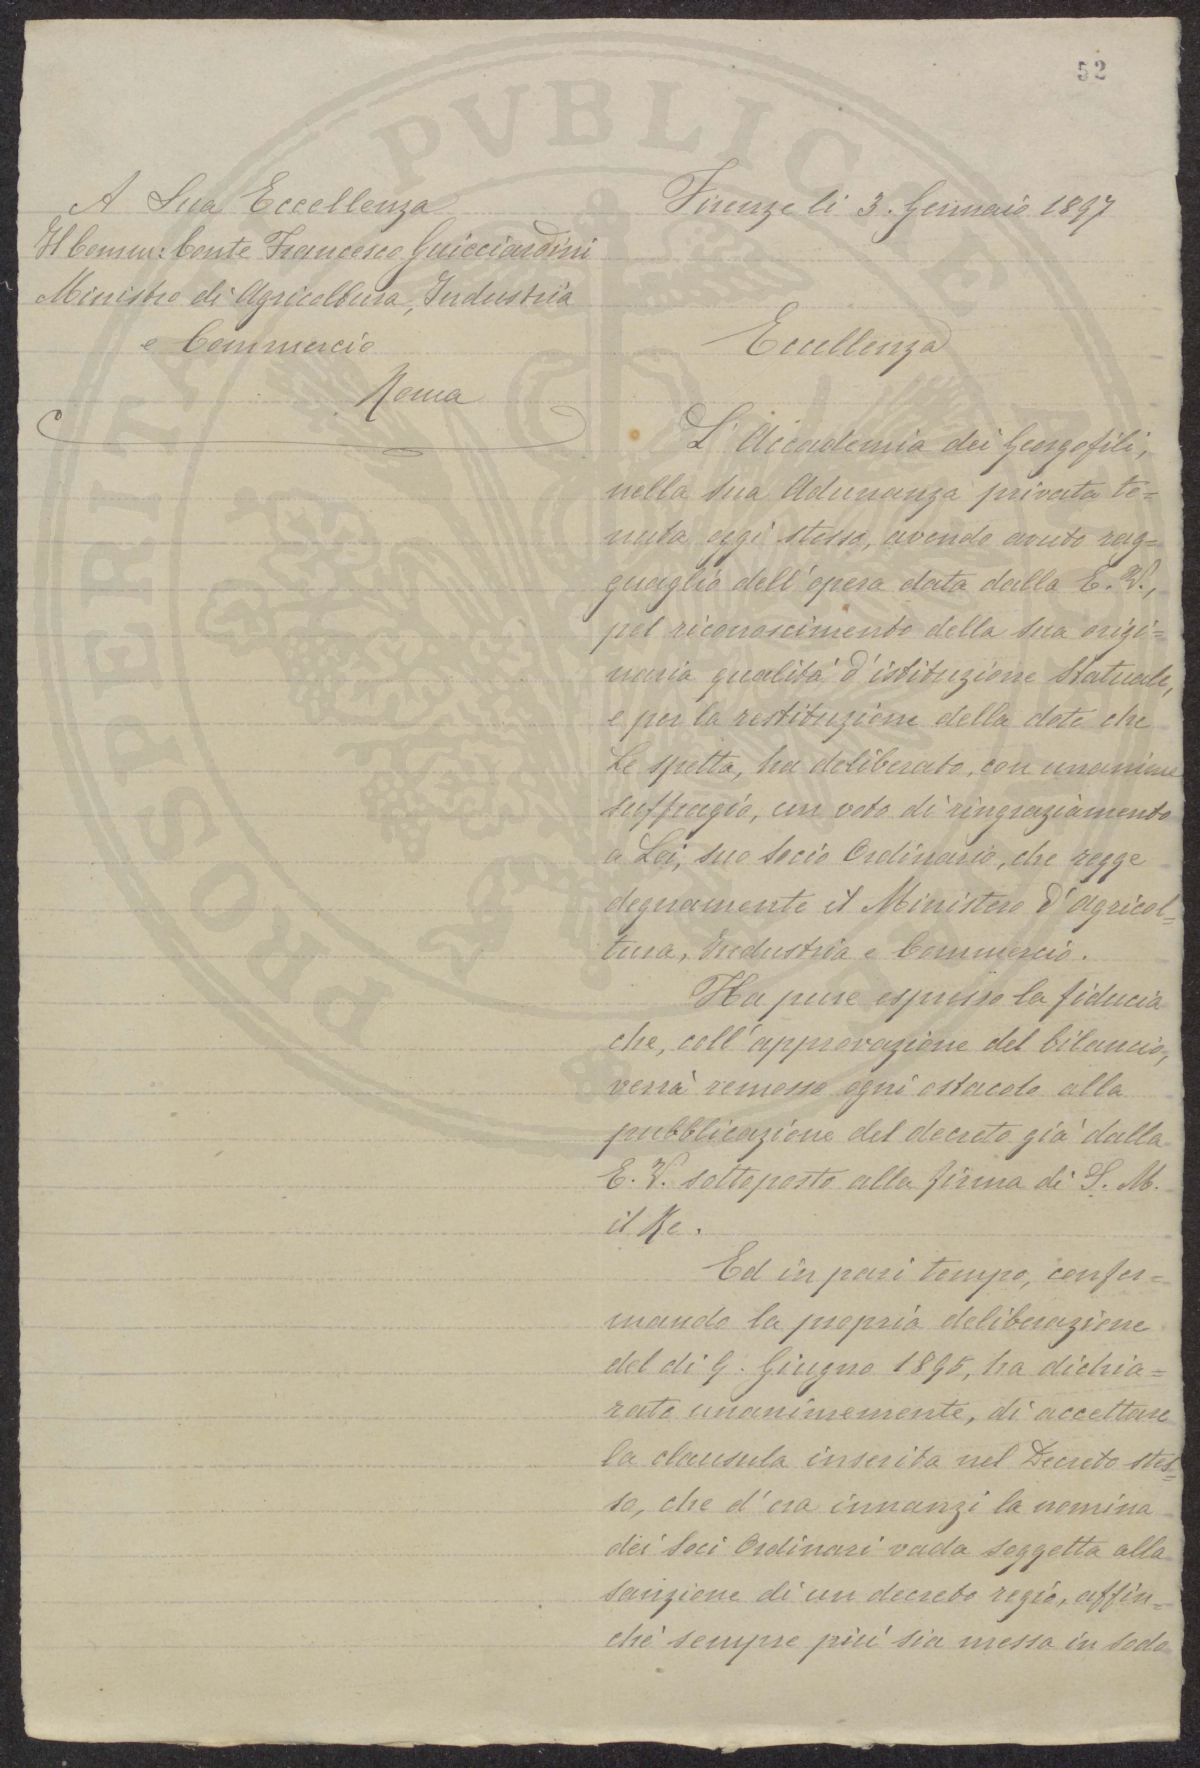 52
A Sua Eccellenza
Il Comm: Conte Francesco Guicciardini
Ministro di Agricoltura, Industria
e Commercio
Roma
Firenze li 3. Gennaio 1897
Eccellenza
L'Accademia dei Georgofili,
nella sua Adunanza privata te=
nuta oggi stesso, avendo avuto rag=
guaglio dell'opera data dalla E. V.,
pel riconoscimento della sua origi=
naria qualità d'istituzione Statuale,
e per la restituzione della dote che
Le spetta, ha deliberato, con unanime
suffragio, un voto di ringraziamento
a Lei, suo Socio Ordinario, che regge
degnamente il Ministero d'Agricol=
tura, Industria e Commercio.
Ha pure espresso la fiducia
che, coll'approvazione del bilancio,
verrà remosso ogni ostacolo alla
pubblicazione del decreto già dalla
E. V. sottoposto alla firma di S. M.
il Re.
Ed in pari tempo, confer=
mando la propria deliberazione
del dì 9. Giugno 1895, ha dichia=
rato unanimemente, di accettare
la clausula inserita nel Decreto stes=
so, che d'ora innanzi la nomina
dei Soci Ordinari vada soggetta alla
sanzione di un decreto regio, affin=
chè sempre più sia messa in sodo
PROSPERITATI PVBLICAE